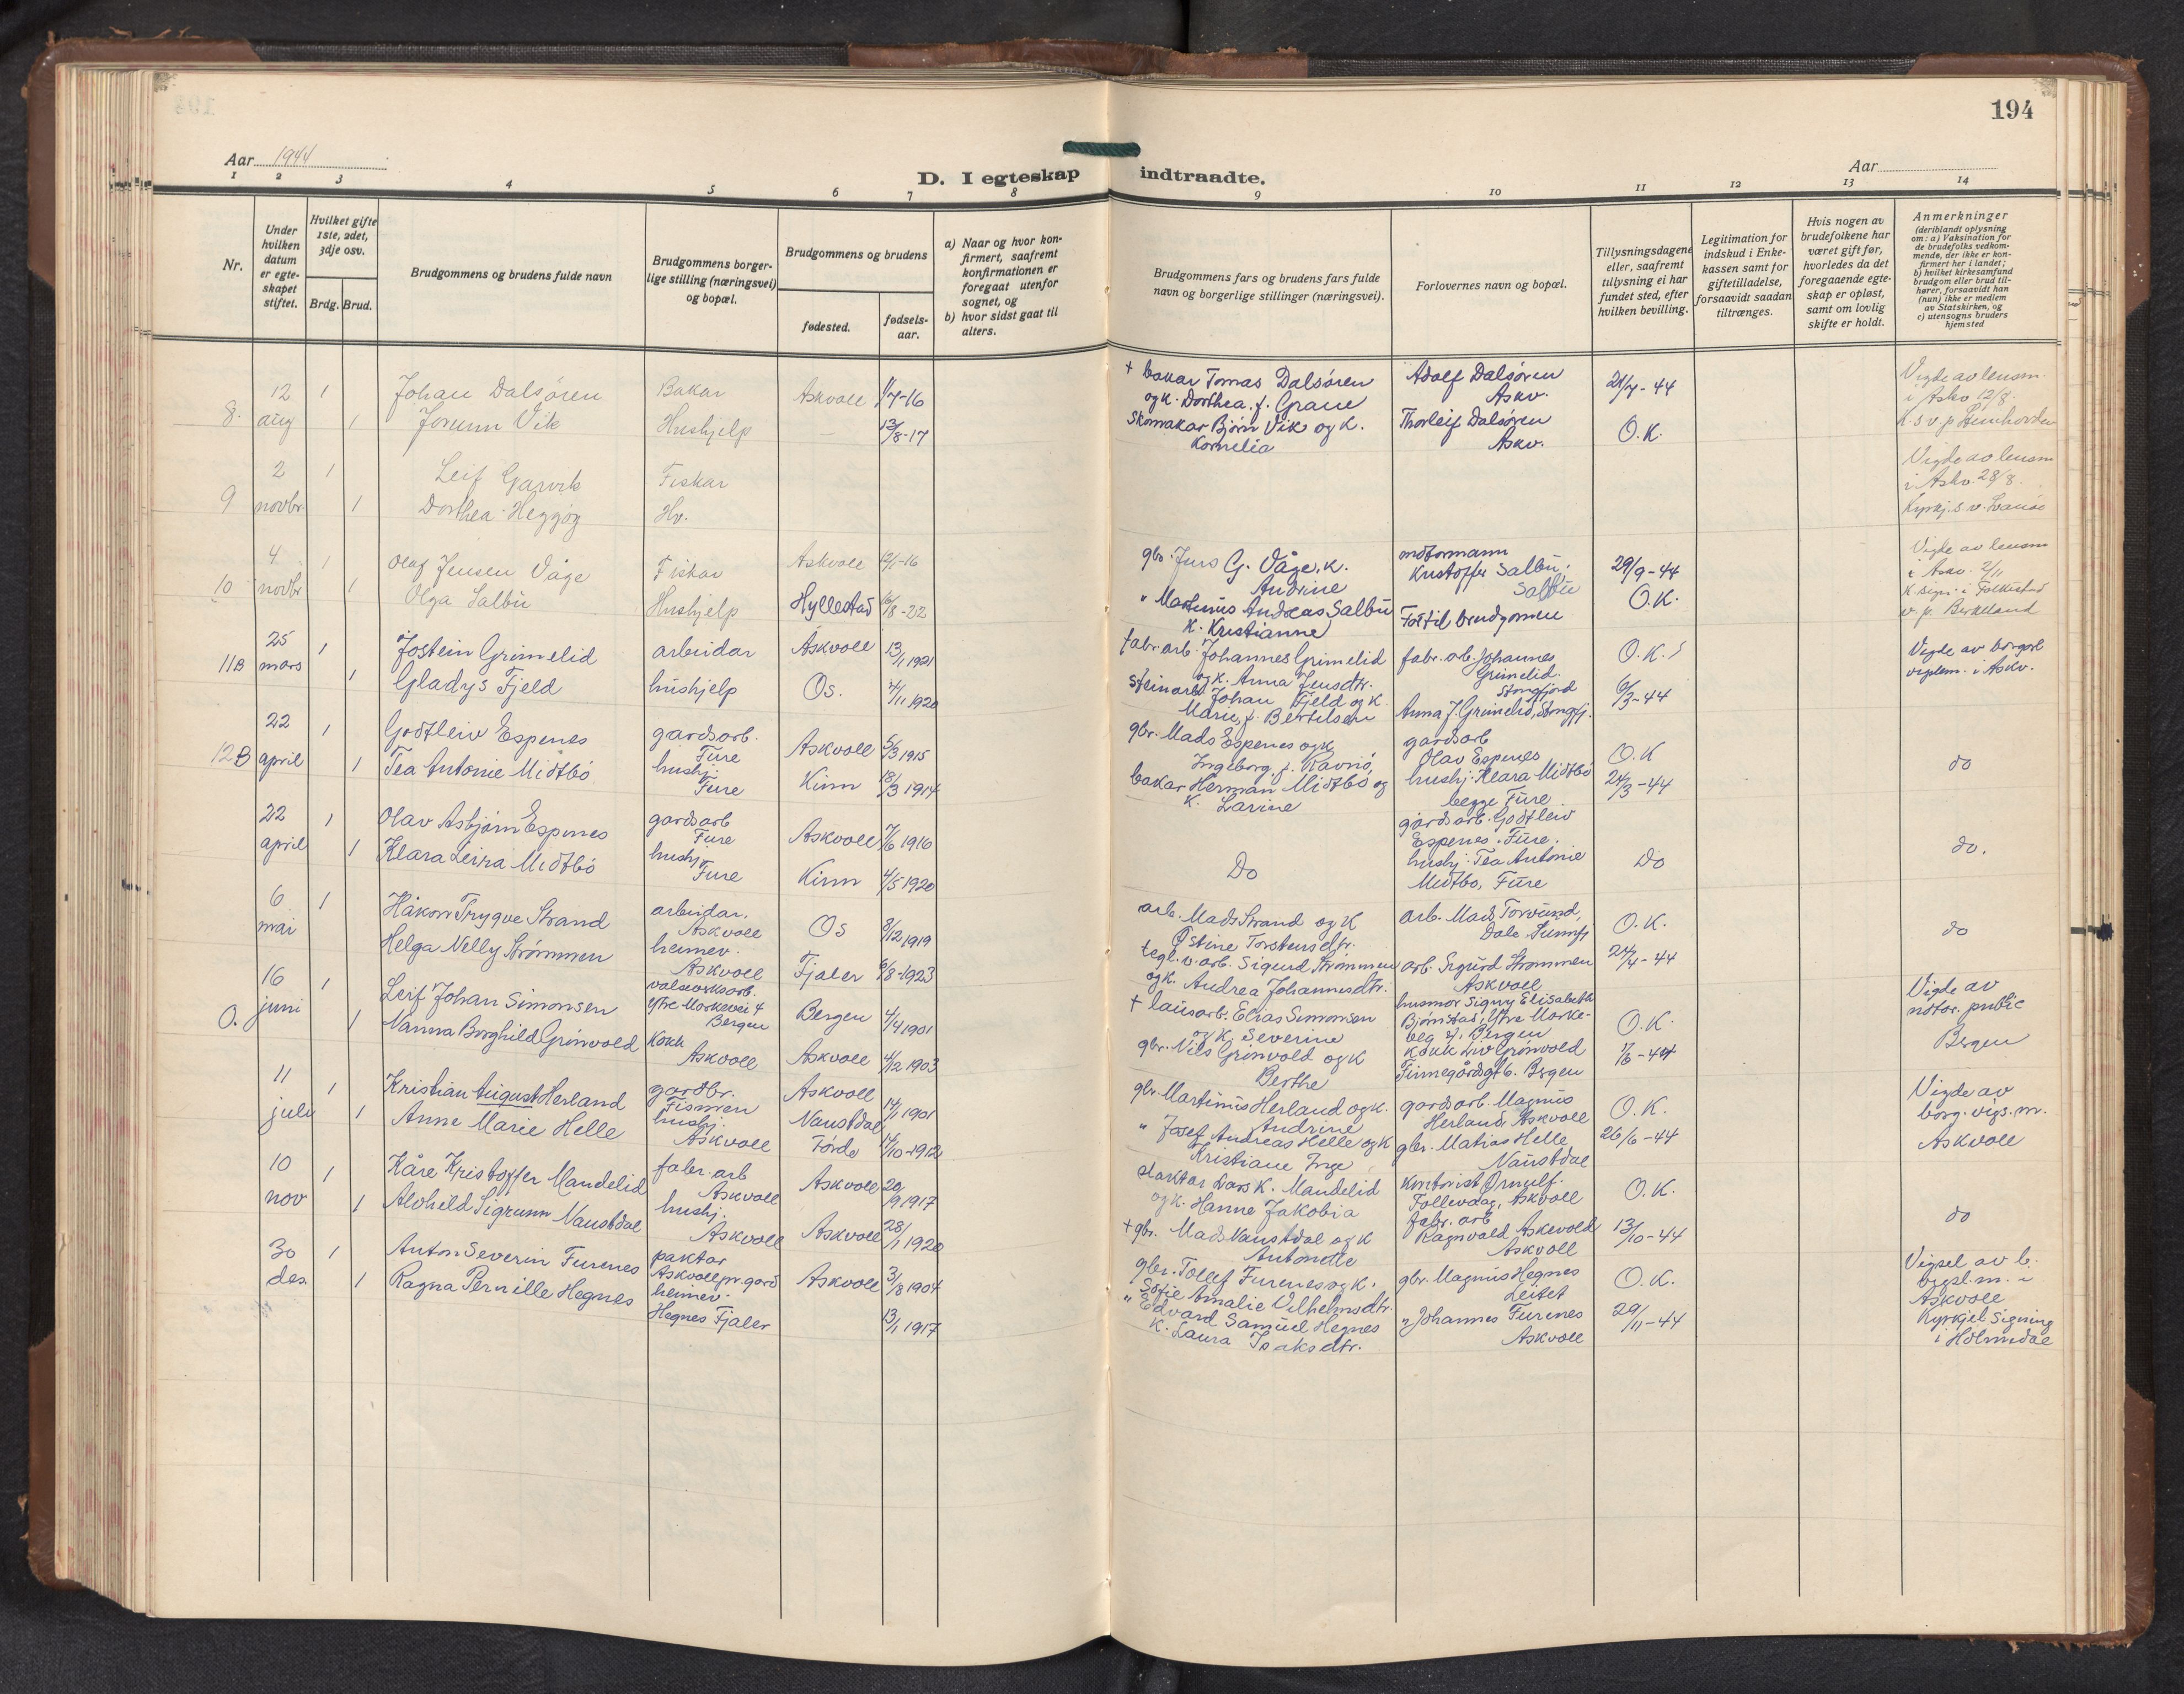 194
Aar 1944
D. I egteskap indtraadte.
Aar
1 2 3 4 5 6 7 8 9 10 11 12 13 14
Nr.
Under hvilken datum er egteskapet stiftet.
Hvilket gifte 1ste, 2det, 3dje osv.
Brdg. Brud.
Brudgommens og brudens fulde navn
Brudgommens borgerlige stilling (næringsvei) og bopæl.
Brudgommens og brudens
fødested.
fødselsaar.
a) Naar og hvor konfirmert, saafremt konfirmationen er foregaat utenfor sognet, og
b) hvor sidst gaat til alters.
Brudgommens fars og brudens fars fulde navn og borgerlige stillinger (næringsvei).
Forlovernes navn og bopæl.
Tillysningsdagene eller, saafremt tillysning ei har fundet sted, efter hvilken bevilling.
Legitimation for indskud i Enkekassen samt for giftetilladelse, forsaavidt saadan tiltrænges.
Hvis nogen av brudefolkene har været gift før, hvorledes da det foregaaende egteskap er opløst, samt om lovlig skifte er holdt.
Anmerkninger
(deriblandt oplysning om: a) Vaksination for de brudefolks vedkommende, der ikke er konfirmert her i landet; b) hvilket kirkesamfund brudgom eller brud tilhører, forsaavidt han (hun) ikke er medlem av Statskirken, og c) utensogns bruders hjemsted
8. 12 aug 1 1
Johan Dalsøren Bakar Askvoll 1/7-16
Jorunn Vik Hushjelp — 13/8-17
+ bakar Tomas Dalsøren
og k. Dorthea, f. Grane
Skomakar Bjørn Vik og k.
Kornelia
Adolf Dalsøren
Askv.
Thorleif Dalsøren
Askv.
21/7-44
O.K.
Vigde av lensm.
i Askv 12/8.
9 2 novbr. 1 1
Leif Garvik Fiskar
Dorthea Heggøy Hv.
Vigde av lensm
i Askv. 28/8.
10 4 novbr 1 1
Olaf Jensen Våge Fiskar Askvoll 12/1-16
Olga Salbu Hushjelp Hyllestad 16/8-22
gbr. Jens G. Våge, k.
Andrine
" Martinus Andreas Salbu
k. Kristianne
motormann
Kristoffer Salbu,
Salbu
Far til brudgommen
29/9-44
O.K.
Vigde av lensm
i Askv. 2/11
v. p. Berkeland
11B 25 mars 1 1
Jostein Grimelid arbeidar Askvoll 13/1 1921
Gladys Fjeld hushjelp Os. 4/11 1920
fabr. arb. Johannes Grimelid
og k. Anna Jensdtr.
Steinarb. Johan Fjeld og k.
Marie, f. Bertilsen
fabr. ab. Johannes
Grimelid.
Stongfjord
Anna J. Grimelid, Stongfj.
O.K.
6/3-44
Vigde av borgerl
vigslem. i Askv.
12B 22 april 1 1
Godtleiv Espenes gardsarb. Fure Askvoll 5/3 1915
Tea Antonie Midtbö hushj. Fure Kinn 18/3 1914
gbr. Mads Espenes og k
Ingeborg, f. Ravnö,
bakar Herman Midtbö og
k. Larine
gardsarb
Olav Espenes
hushj. Klara Midtbö
begge Fure
O.K
24/3-44
do
22 april 1 1
Olav Asbjörn Espenes gardsarb Fure Askvoll 7/6 1916
Klara Leira Midtbö hushj. Fure Kinn 4/5 1920
Do
gardsarb. Godtleiv
Espenes. Fure.
hushj. Tea Antonie
Midtbo, Fure
Do
do.
6 mai 1
Håkon Trygve Strand arbeidar, Askvoll Os 8/12 1919
Helga Nelly Strømmen heimev. Askvoll Fjaler 6/8-1923
arb. Mads Strand og k
Østine Torstensdtr.
tegl.v.arb. Sigurd Strømmen
og k. Andrea Johannesdtr.
arb. Mads Torvund,
Dale Sunnfj
arb. Sigurd Strømmen
Askvoll
O.K.
24/4-44
do
O. 16 juni 1 1
Leif Johan Simonsen valseverksarb. Ytre Markevei 4 Bergen Bergen 4/4 1901
Nanna Borghild Grönvold Kokk Askvoll Askvoll 4/12 1903
+ lausarb. Elias Simonsen
og k. Severine
gbr. Nils Grönvold og k
Berthe
husmor Signy Elisabeth
Bjørnstad, Ytre Markeveg 4, Bergen
kokk Liv Grönvold
Finnegårdsgt 6. Bergen
O.K.
7/6-44
Vigde av
notar. public
Bergen
11 juli 1 1
Kristian August Herland gardbr. Askvoll 14/1 1901
Anne Marie Helle hushj. Askvoll Naustdal Førde 14/10-1912
gbr. Martinus Herland og k.
Andrine
" Josef Andreas Helle og k
Kristiane Inge
gardsarb. Magnus
Herland, Askvoll
gbr. Matias Helle,
Naustdal
O.K.
26/6-44
Vigde av
borg. vigs. m.
Askvoll
10 nov 1 1
Kåre Kristoffer Mandelid fabr. arb Askvoll Askvoll 20/9 1917
Alvhild Sigrunn Naustdal hushj. Askvoll Askvoll 28/1 1920
slaktar Lars K. Mandelid
og k. Hanne Jakobia
+ gbr. Mads Naustdal og k
Antonette
kontorist Ørnulf
Follevåg, Askvoll
fabr. arb
Ragnvald Askevold
Askvoll
O.K.
13/10-44
do
30 des. 1 1
Anton Severin Furenes paktar Askvoll pr. gard Askvoll 3/8 1904
Ragna Pernille Hegnes heimev. Hegnes Fjaler 13/1 1917
gbr. Tollef Furenes og k.
Sofie Amalie Vilhelmsdtr.
" Edvard Samuel Hegnes
k. Laura Isaksdtr.
gbr. Magnus Hegnes
Leitet
" Johannes Furenes
Askvoll
O.K.
29/11-44
Vigsel av b.
vigsl. m. i
Askvoll
Kyrkjel signing
i Holmedal